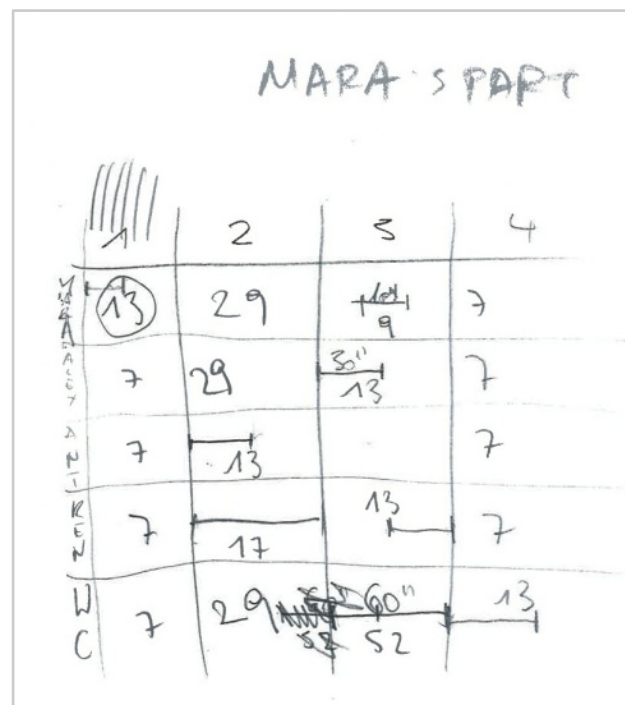 MARA'S PART
1 2 3 4
MARA 13 29 9 7
ALEX 7 29 30" 13 7
ANTI 7 13 7
REN 7 17 13 7
WC 7 29 60" 52 13